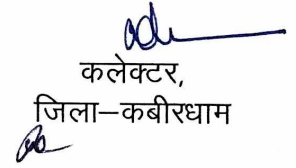 कलेक्टर,
जिला–कबीरधाम